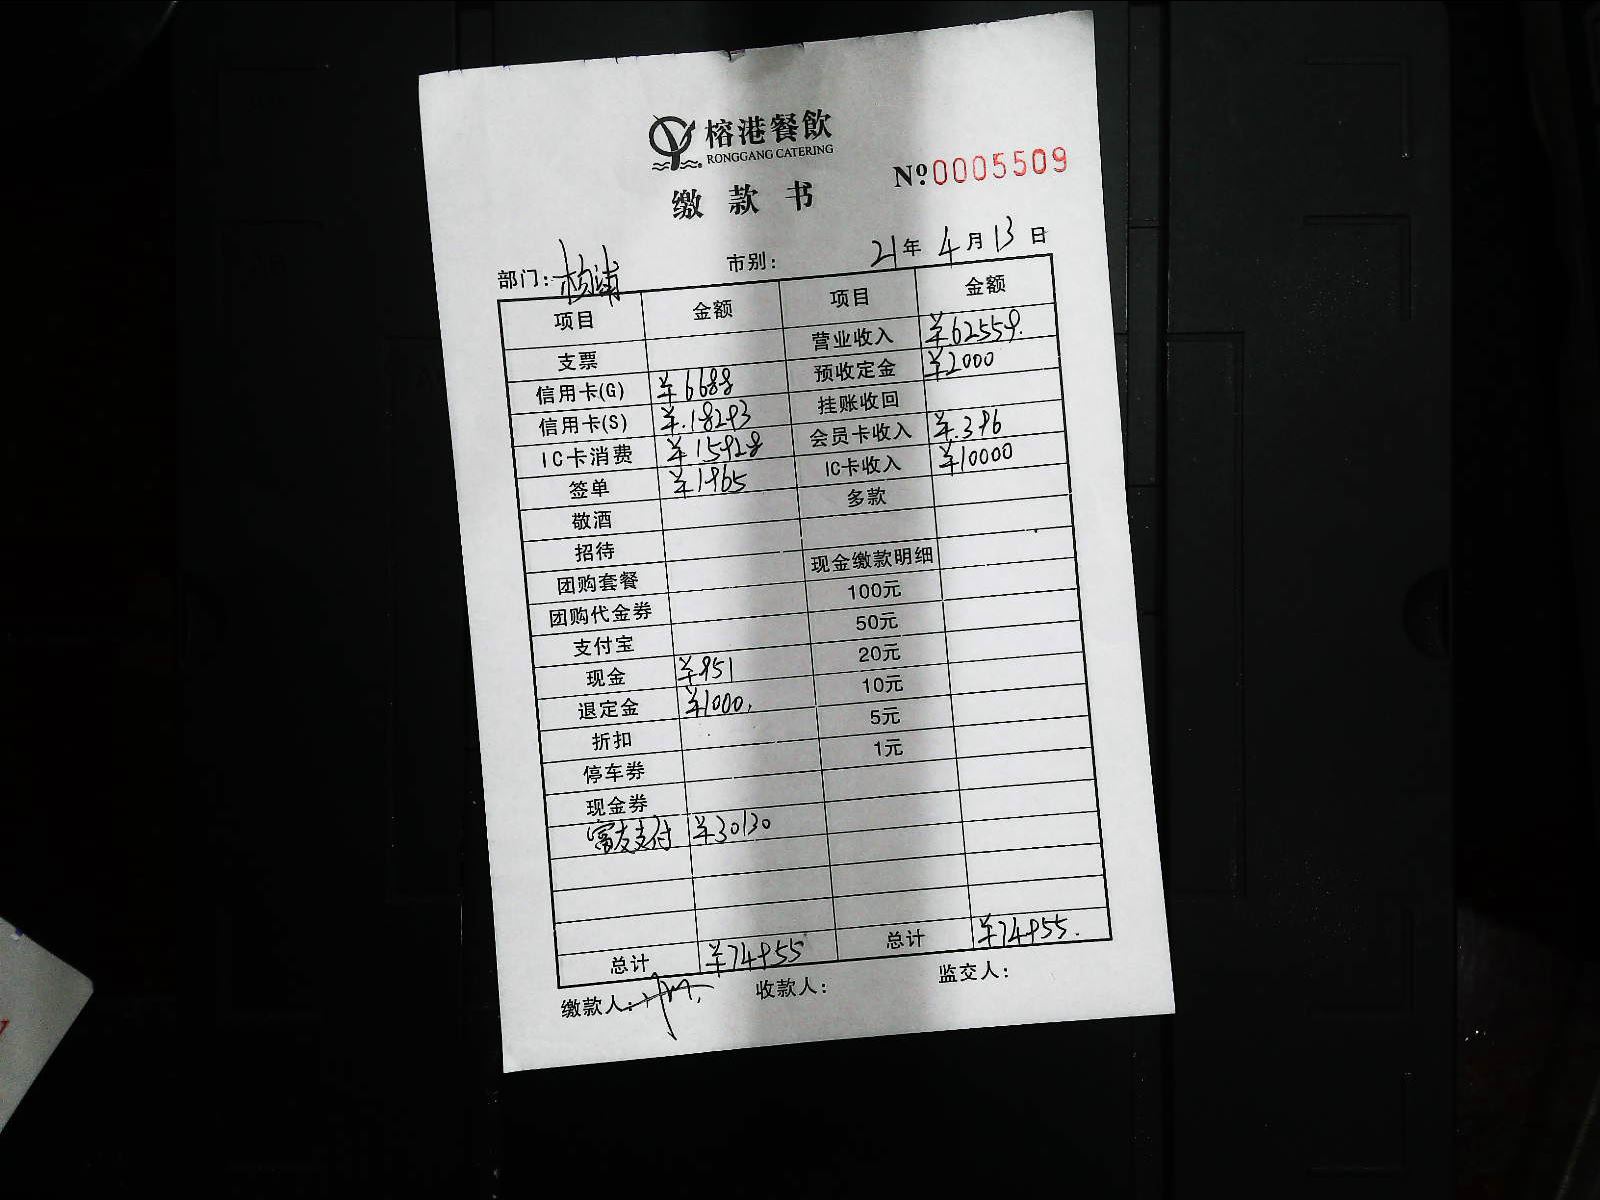 榕港餐飲
RONGGANG CATERING
缴款书
Nº0005509
部门:杨浦 市别: 21年4月13日
项目 金额 项目 金额
支票 营业收入 ¥62559.
信用卡(G) ¥6688 预收定金 ¥2000
信用卡(S) ¥.18293 挂账收回
IC卡消费 ¥15928 会员卡收入 ¥.396
签单 ¥1965 IC卡收入 ¥10000
敬酒 多款
招待
团购套餐 现金缴款明细
团购代金券 100元
支付宝 50元
现金 ¥951 20元
退定金 ¥1000. 10元
折扣 5元
停车券 1元
现金券
富友支付 ¥30130
总计 ¥74955 总计 ¥74955.
缴款人: 收款人: 监交人: